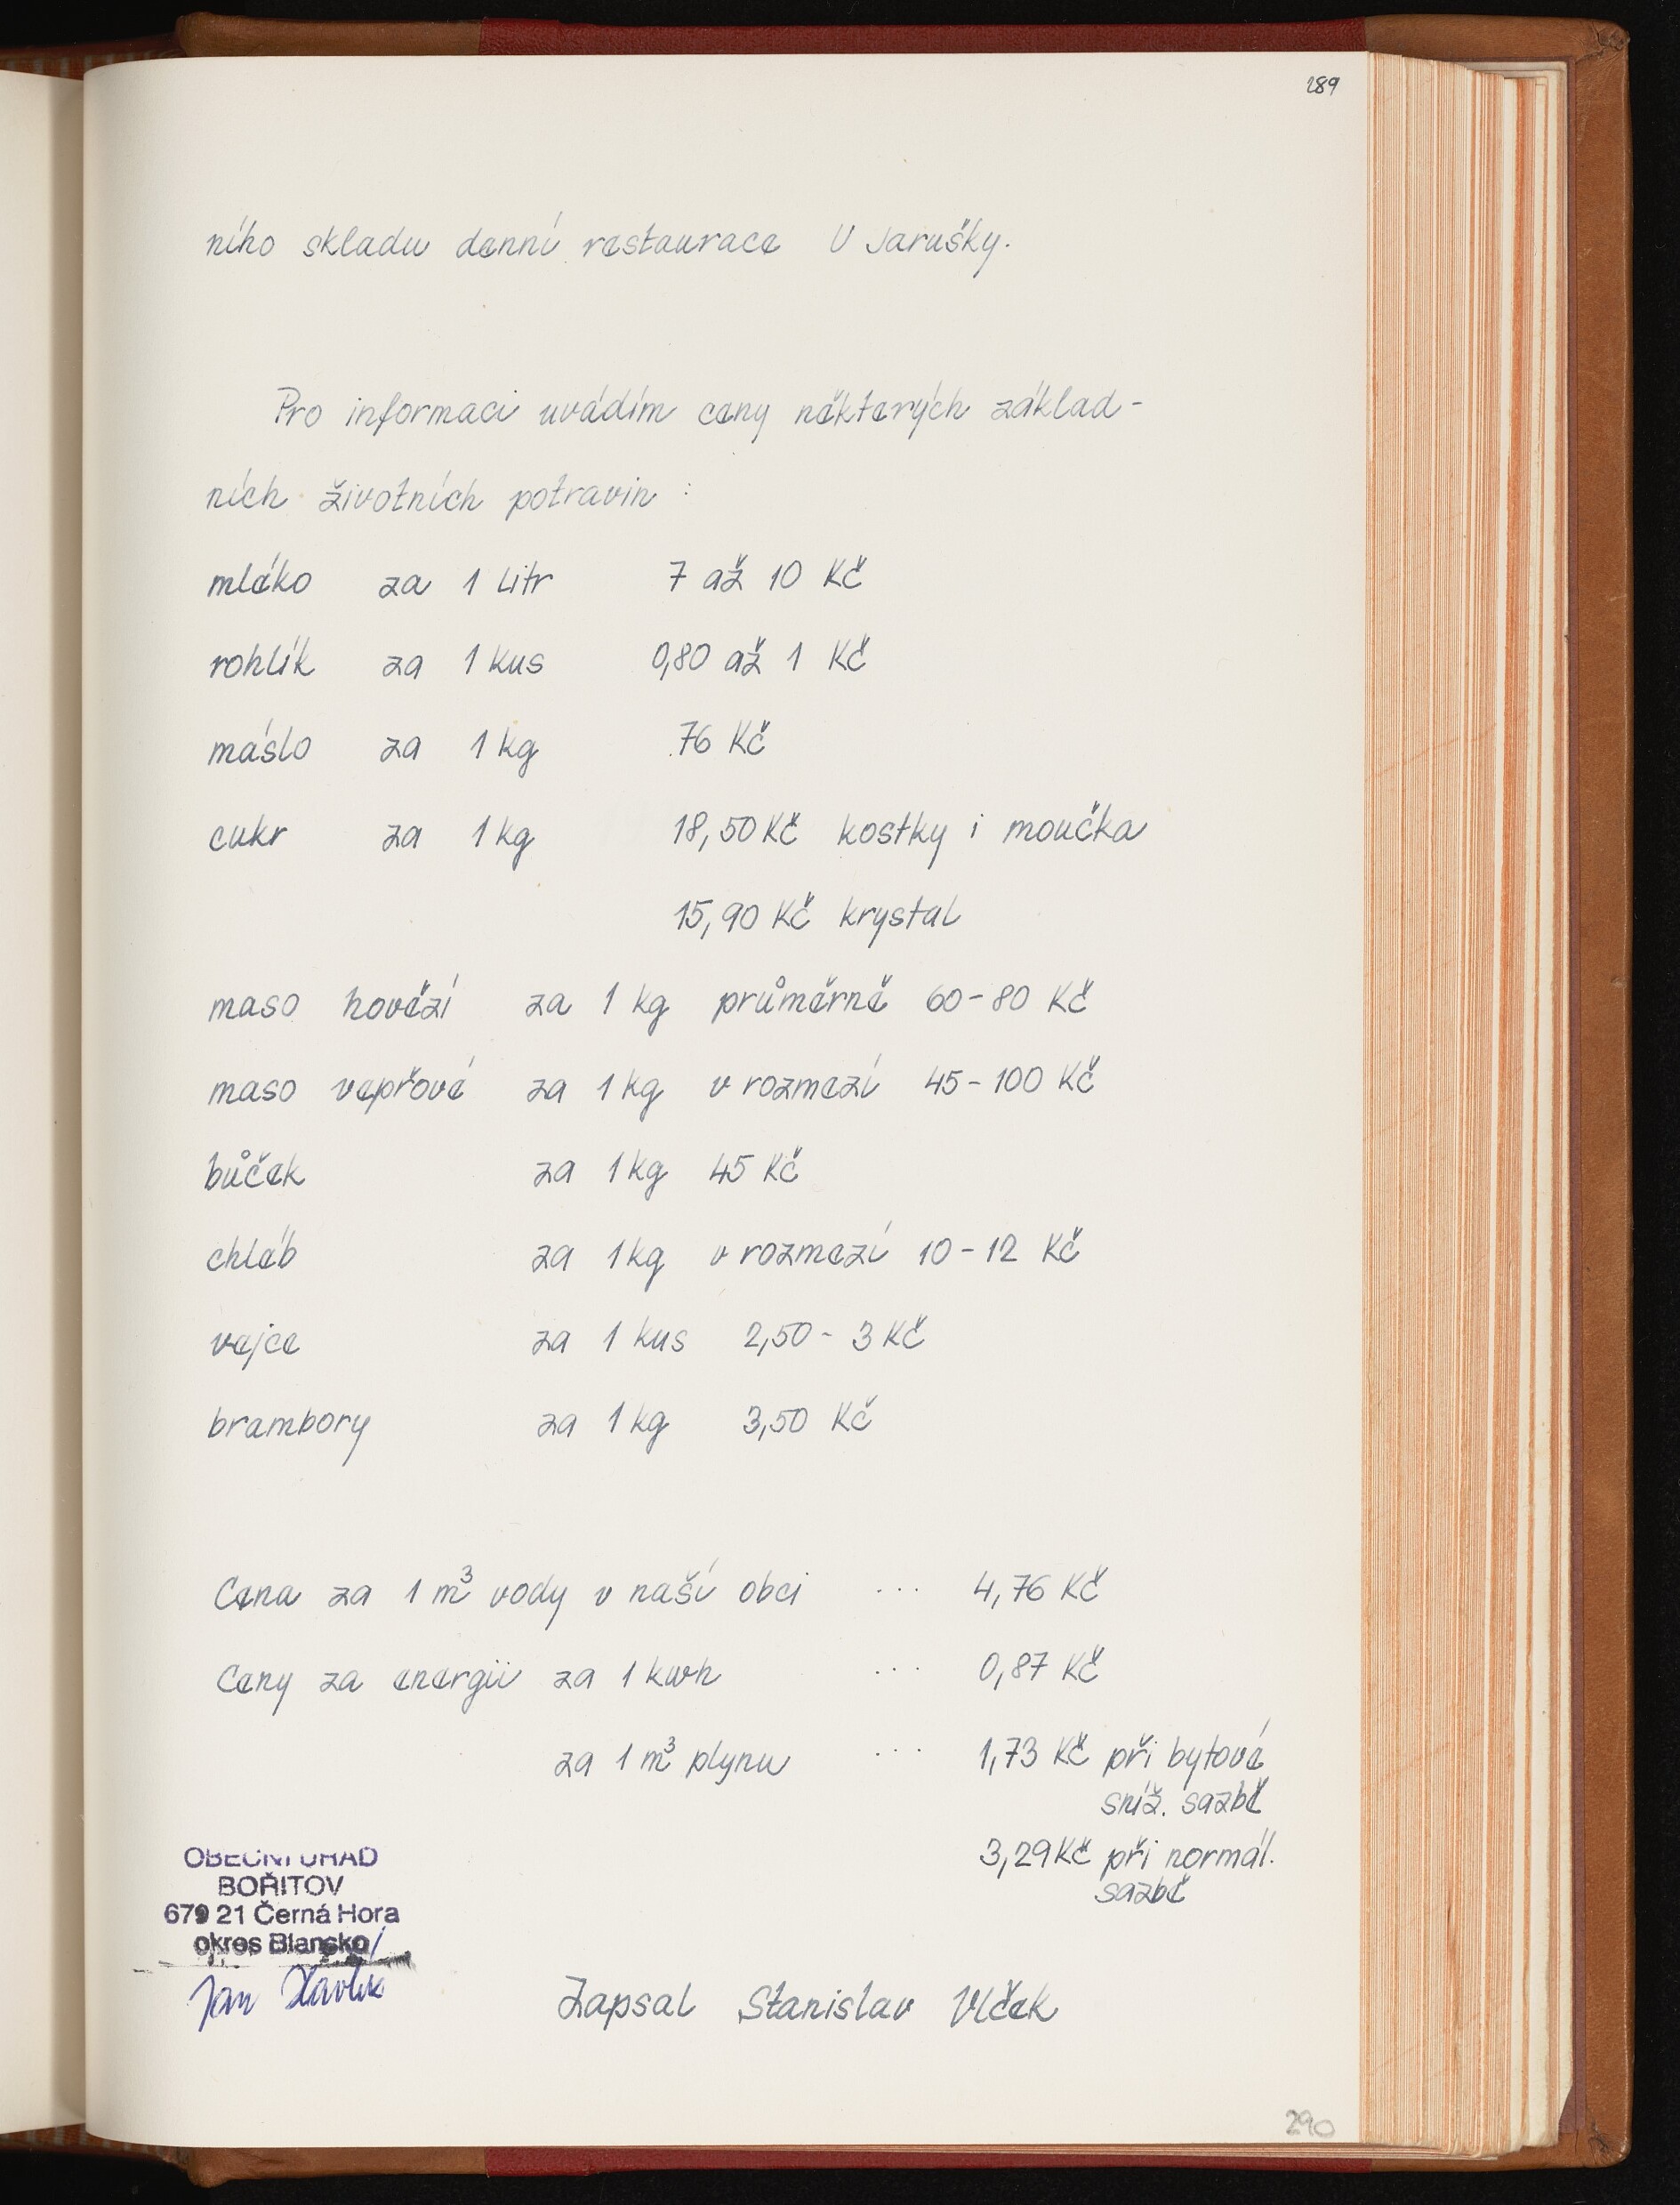 289
ního skladu denní restaurace U Jarušky.
Pro informaci uvádím ceny některých základ-
ních životních potravin :
mléko za 1 litr 7 až 10 Kč
rohlík za 1 kus 0,80 až 1 Kč
máslo za 1 kg 76 Kč
cukr za 1 kg 18,50 Kč kostky i moučka
15,90 Kč krystal
maso hovězí za 1 kg průměrně 60-80 Kč
maso vepřové za 1 kg v rozmezí 45-100 Kč
bůček za 1 kg 45 Kč
chléb za 1 kg v rozmezí 10-12 Kč
vejce za 1 kus 2,50 - 3 Kč
brambory za 1 kg 3,50 Kč
Cena za 1 m³ vody v naší obci ... 4,76 Kč
Ceny za energii za 1 kwh ... 0,87 Kč
za 1 m³ plynu ... 1,73 Kč při bytové
sníž. sazbě
3,29 Kč při normál.
sazbě
OBECNÍ ÚŘAD
BOŘITOV
679 21 Černá Hora
okres Blansko
Jan Havlík
Zapsal Stanislav Vlček
290